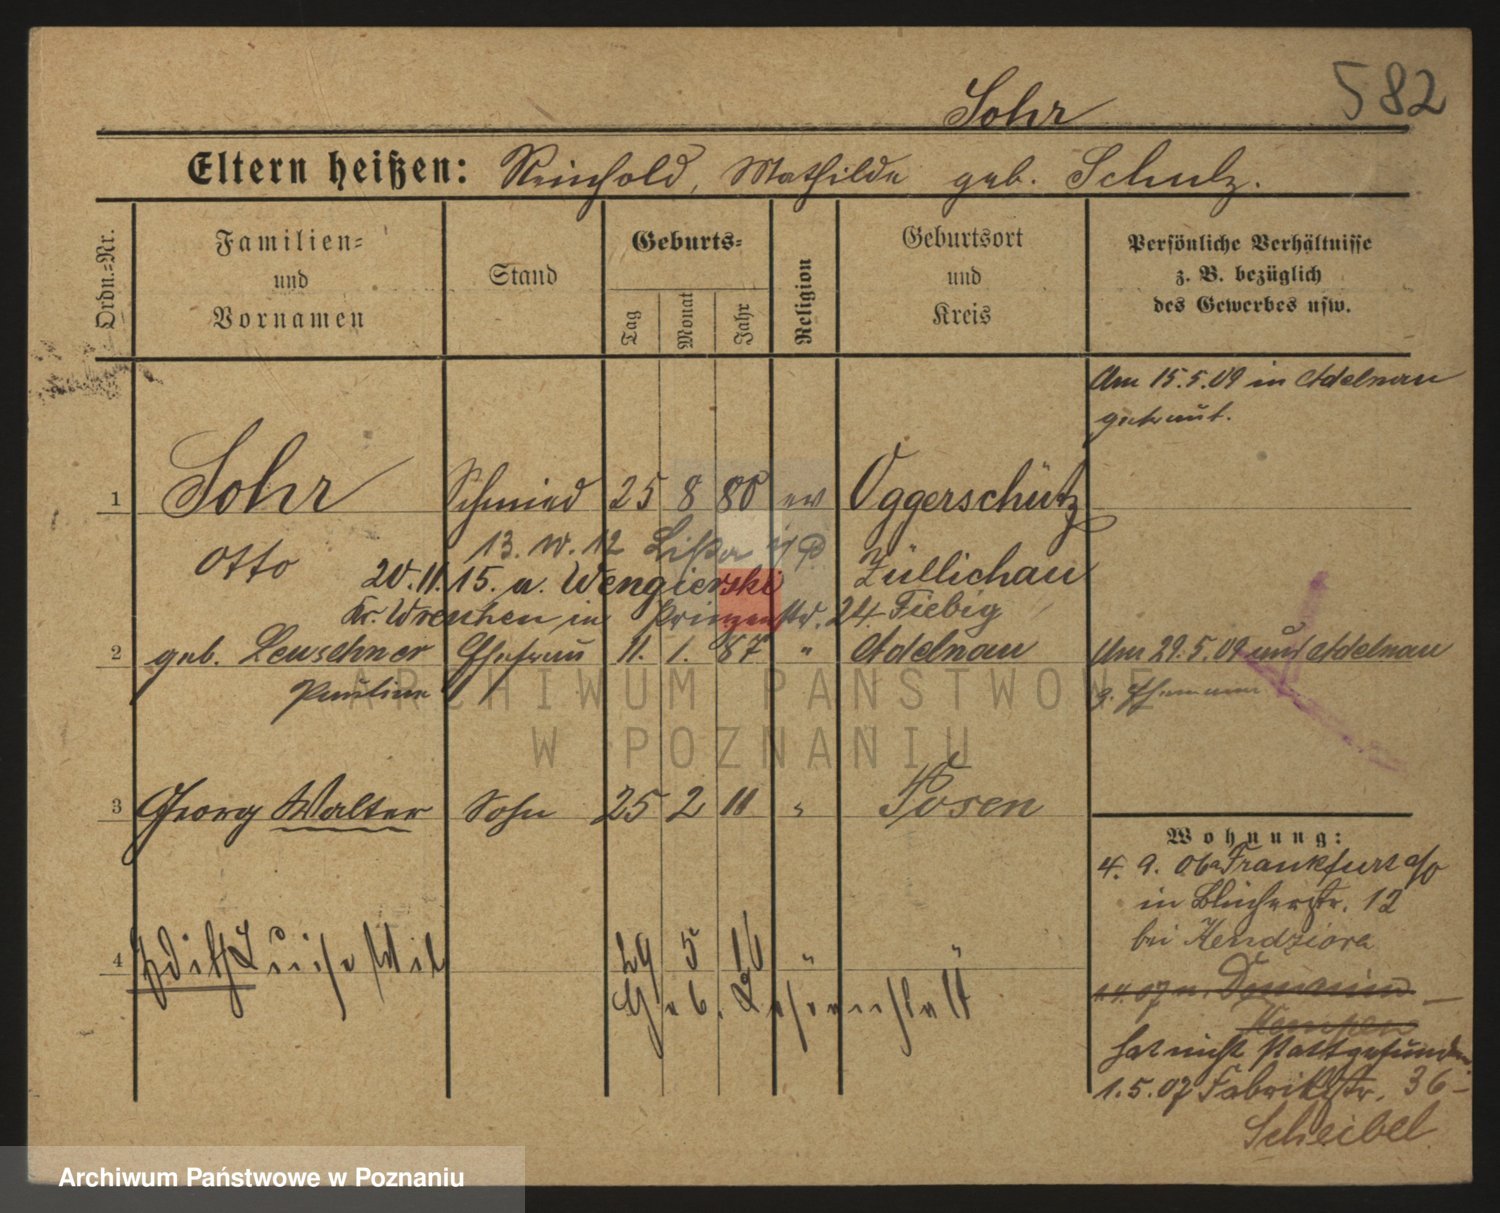 582
Sohr
Eltern heißen: Reinhold, Mathilde geb. Schulz.
Ordn.-Nr.
Familien-
und
Vornamen
Stand
Geburts-
Tag
Monat
Jahr
Religion
Geburtsort
und
Kreis
Persönliche Verhältnisse
z. B. bezüglich
des Gewerbes usw.
Am 15.5.09 in Adelnau
getraut.
1 Sohr Schmied 25 8 80 ev Oggerschütz
Otto 13. 10. 12 Lissa i/P Züllichau
20.11.15. a. Wengierski
Kr. Wreschen in Prinzenstr. 24 Fiebig
2 geb. Leuschner Ehefrau 11. 1. 87 " Adelnau Am 29.5.09 aus Adelnau
Pauline
3 Georg Walter Sohn 25 2 11 " Posen
Wohnung:
4. 9. 06 a Frankfurt a/O
in Blücherstr. 12
bei Kendziora
4 Edith Luise 29 5 16 "
Geb.
07 n. Dominium
Kempen
hat nicht stattgefunden
1.5.07 Fabrikstr. 36 -
Scheibel
ARCHIWUM PAŃSTWOWE
W POZNANIU
Archiwum Państwowe w Poznaniu